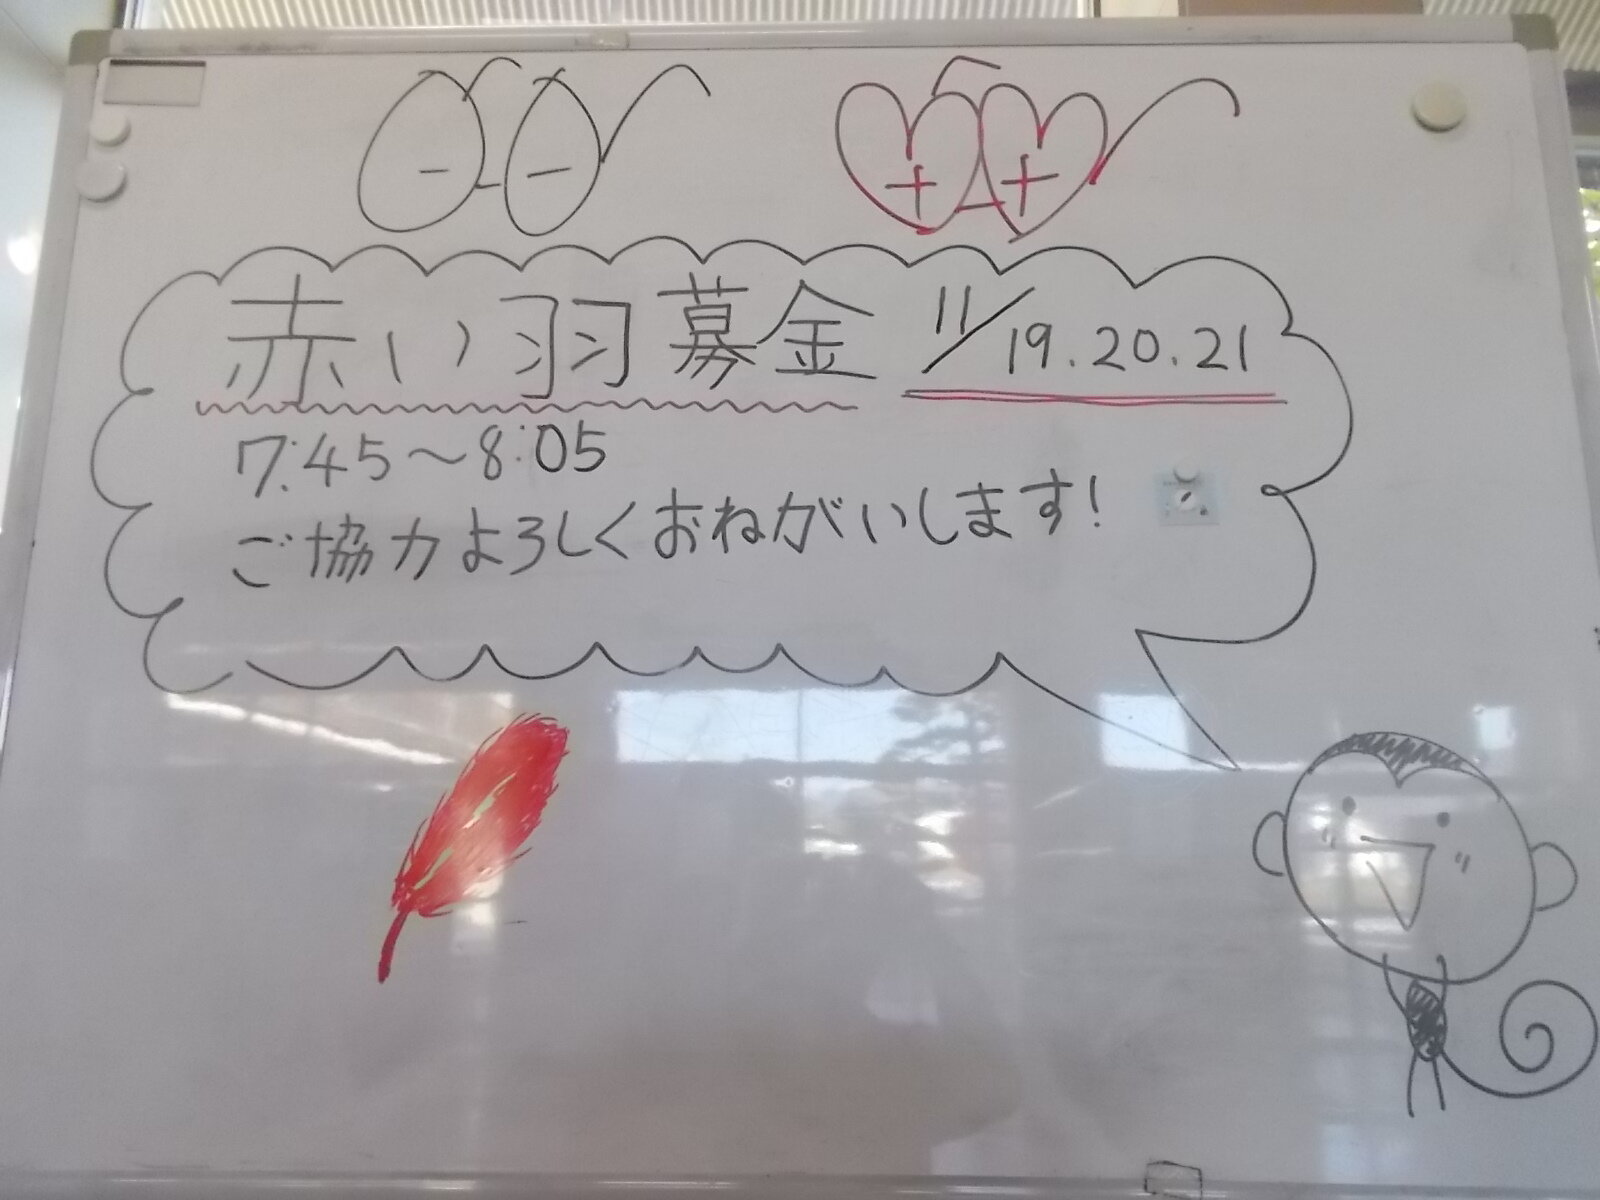 赤い羽募金 11/19.20.21
7:45～8:05
ご協力よろしくおねがいします!